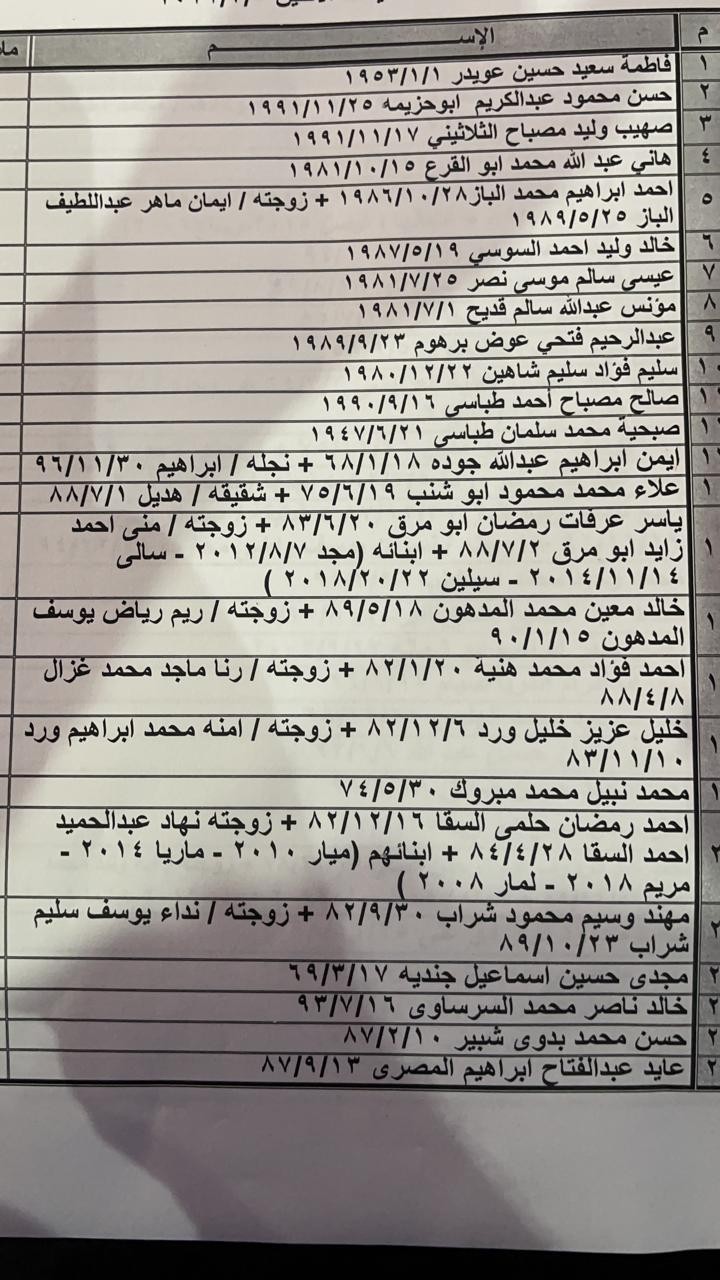 م الإســـــــم
١ فاطمة سعيد حسين عويدر ١٩٥٣/١/١
٢ حسن محمود عبدالكريم ابوحزيمه ١٩٩١/١١/٢٥
٣ صهيب وليد مصباح الثلاثيني ١٩٩١/١١/١٧
٤ هاني عبد الله محمد ابو القرع ١٩٨١/١٠/١٥
٥ احمد ابراهيم محمد الباز١٩٨٦/١٠/٢٨ + زوجته / ايمان ماهر عبداللطيف
الباز ١٩٨٩/٥/٢٥
٦ خالد وليد احمد السوسي ١٩٨٧/٥/١٩
٧ عيسى سالم موسى نصر ١٩٨١/٧/٢٥
٨ مؤنس عبدالله سالم قديح ١٩٨١/٧/١
٩ عبدالرحيم فتحي عوض برهوم ١٩٨٩/٩/٢٣
سليم فؤاد سليم شاهين ١٩٨٠/١٢/٢٢
صالح مصباح أحمد طباسى ١٩٩٠/٩/١٦
صبحية محمد سلمان طباسى ١٩٤٧/٦/٢١
ايمن ابراهيم عبدالله جوده ٦٨/١/١٨ + نجله / ابراهيم ٩٦/١١/٣٠
علاء محمد محمود ابو شنب ٧٥/٦/١٩ + شقيقه / هديل ٨٨/٧/١
ياسر عرفات رمضان ابو مرق ٨٣/٦/٢٠ + زوجته / منى احمد
زايد ابو مرق ٨٨/٧/٢ + ابنائه (مجد ٢٠١٢/٨/٧ - سالى
٢٠١٤/١١/١٤ - سيلين ٢٠١٨/٢٠/٢٢ )
خالد معين محمد المدهون ٨٩/٥/١٨ + زوجته / ريم رياض يوسف
المدهون ٩٠/١/١٥
احمد فؤاد محمد هنية ٨٢/١/٢٠ + زوجته / رنا ماجد محمد غزال
٨٨/٤/٨
خليل عزيز خليل ورد ٨٢/١٢/٦ + زوجته / امنه محمد ابراهيم ورد
٨٣/١١/١٠
محمد نبيل محمد مبروك ٧٤/٥/٣٠
احمد رمضان حلمى السقا ٨٢/١٢/١٦ + زوجته نهاد عبدالحميد
احمد السقا ٨٤/٤/٢٨ + ابنائهم (ميار ٢٠١٠ - ماريا ٢٠١٤ -
مريم ٢٠١٨ - لمار ٢٠٠٨ )
مهند وسيم محمود شراب ٨٢/٩/٣٠ + زوجته / نداء يوسف سليم
شراب ٨٩/١٠/٢٣
مجدى حسين اسماعيل جنديه ٦٩/٣/١٧
خالد ناصر محمد السرساوى ٩٣/٧/١٦
حسن محمد بدوى شبير ٨٧/٢/١٠
عايد عبدالفتاح ابراهيم المصرى ٨٧/٩/١٣